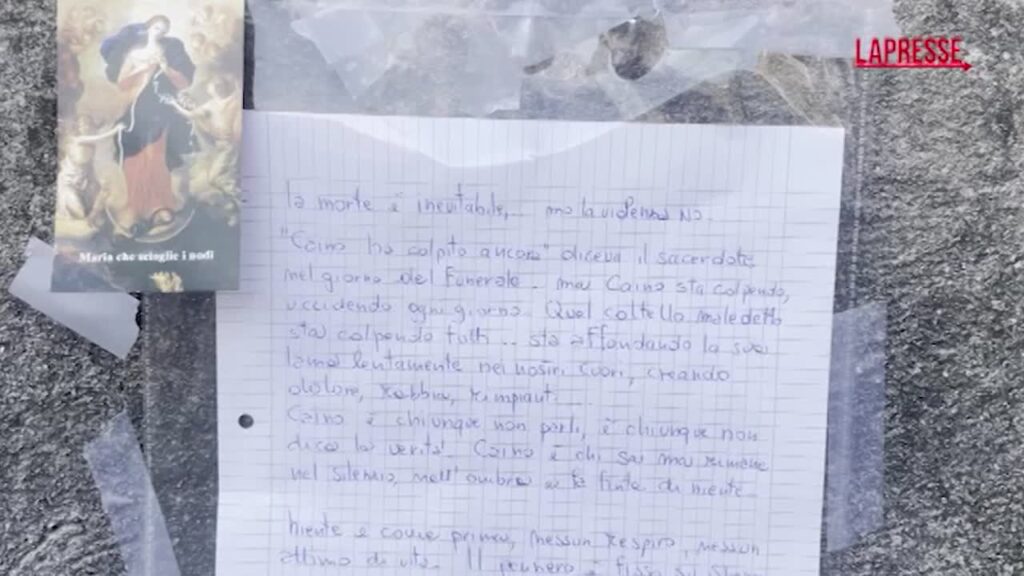 LAPRESSE
Maria che scioglie i nodi
la morte è inevitabile,... ma la violenza NO.
"Caino ha colpito ancora" diceva il sacerdote
nel giorno del Funerale. ma Caino sta colpendo,
uccidendo ogni giorno. Quel coltello maledetto
sta colpendo tutti... sta affondando la sua
lama lentamente nei nostri cuori, creando
dolore, rabbia, rimpianti.
Caino è chiunque non parli, è chiunque non
dica la verità. Caino è chi sa ma rimane
nel silenzio, nell'ombra e fa finta di niente.
Niente è come prima, nessun respiro, nessun
attimo di vita. Il